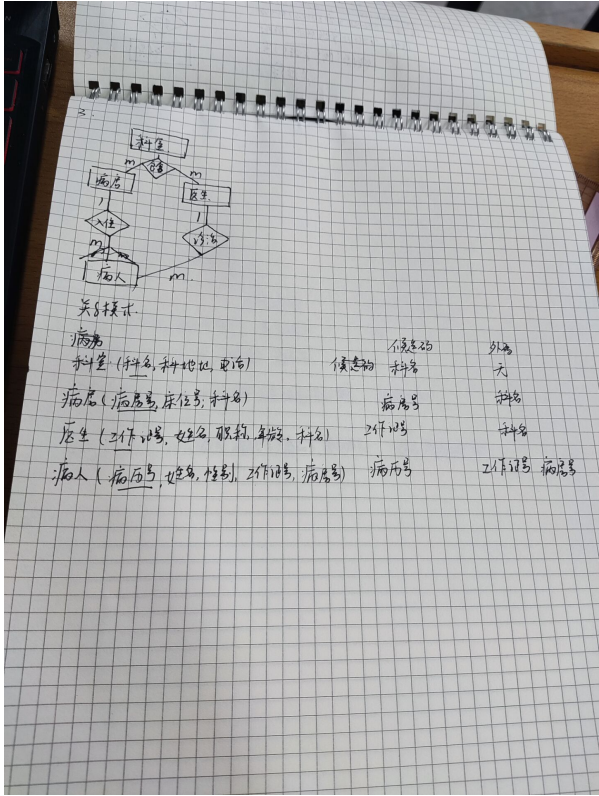 3.
科室
m 包含 m
病房 医生
1 1
入住 诊治
m
病人 m
关系模式
病房 候选码 外码
科室(科名,科地址,电话) 候选码 科名 无
病房(病房号,床位号,科名) 病房号 科名
医生(工作证号,姓名,职称,年龄,科名) 工作证号 科名
病人(病历号,姓名,性别,工作证号,病房号) 病历号 工作证号 病房号